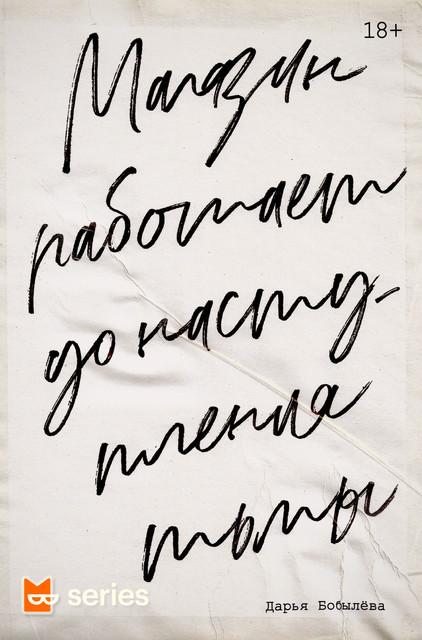 18+
Магазин
работает
до насту-
пления
тьмы
series
Дарья Бобылёва